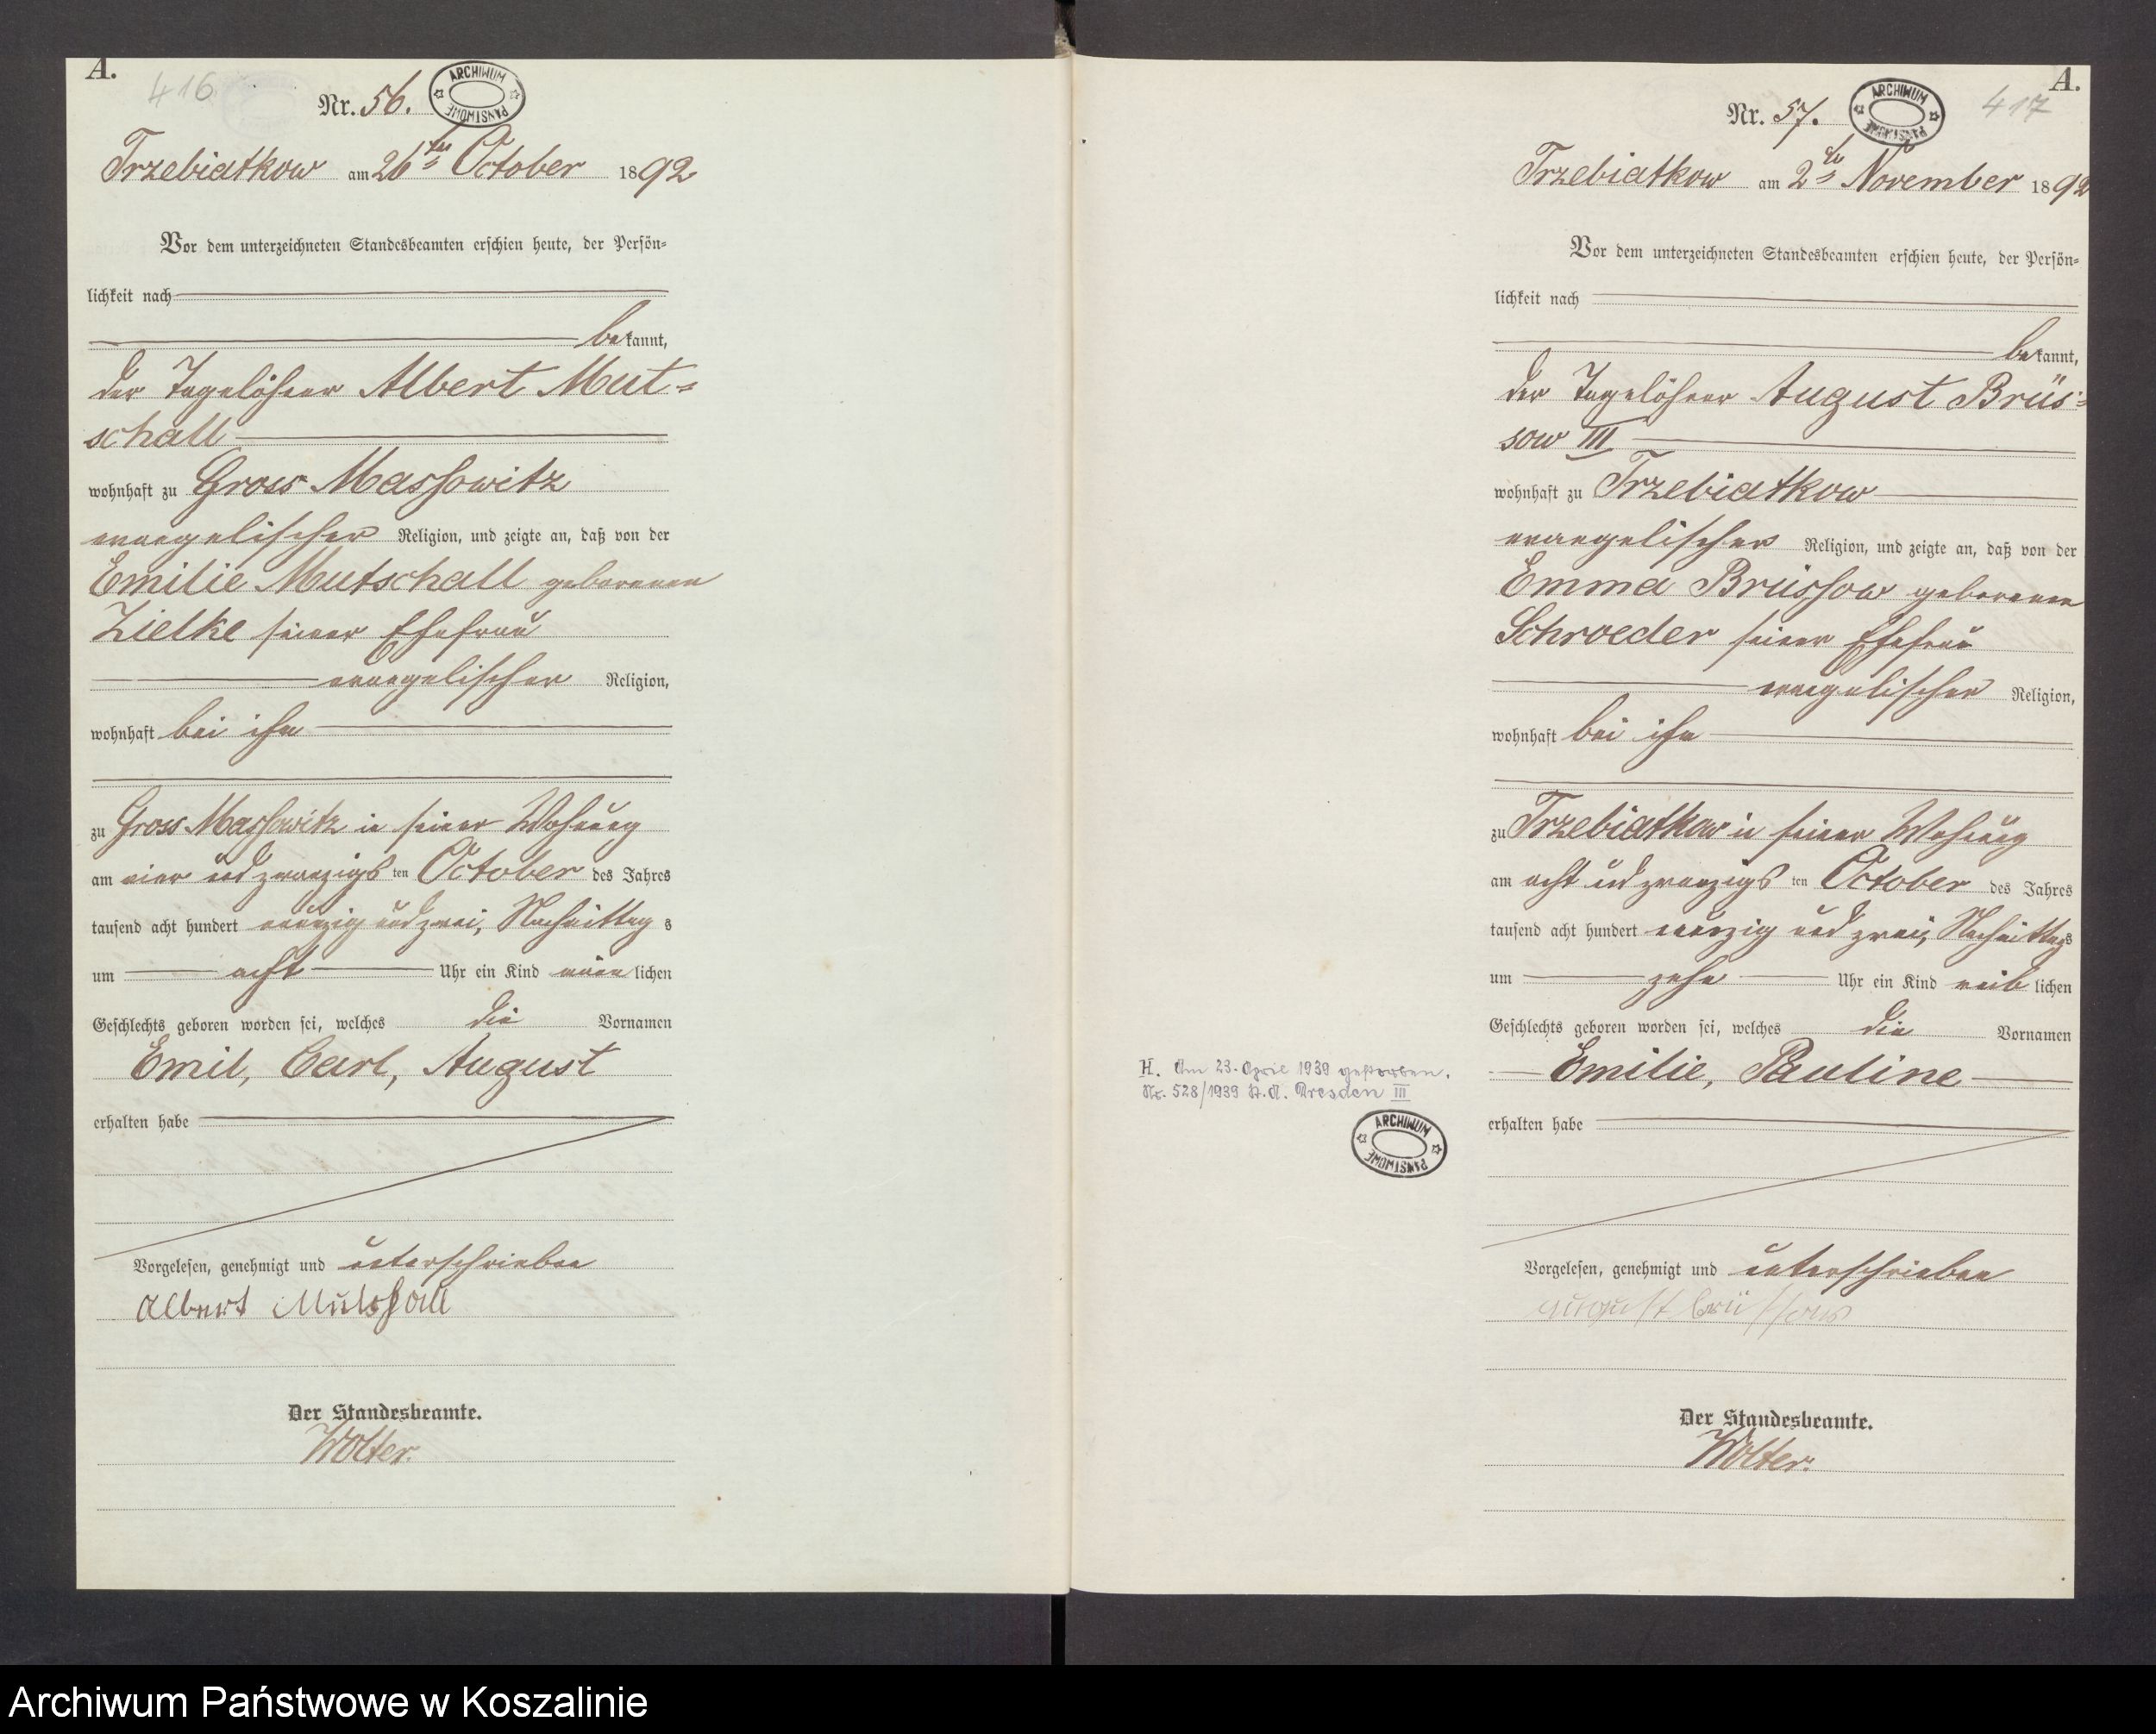 A.
416
Nr. 56.
ARCHIWUM PAŃSTWOWE
Trzebiatkow am 26ten October 1892
Vor dem unterzeichneten Standesbeamten erschien heute, der Persön-
lichkeit nach
bekannt,
der Tagelöhner Albert Mut-
schall
wohnhaft zu Gross Massowitz
evangelischer Religion, und zeigte an, daß von der
Emilie Mutschall geborenen
Zielke seiner Ehefrau
evangelischer Religion,
wohnhaft bei ihm
zu Gross Massowitz in seiner Wohnung
am vier und zwanzigsten October des Jahres
tausend acht hundert neunzig und zwei, Nachmittags
um acht Uhr ein Kind männlichen
Geschlechts geboren worden sei, welches die Vornamen
Emil, Carl, August
erhalten habe
Vorgelesen, genehmigt und unterschrieben
Albert Mutschall
Der Standesbeamte.
Wolter.
A.
417
Nr. 57.
ARCHIWUM PAŃSTWOWE
Trzebiatkow am 2ten November 1892
Vor dem unterzeichneten Standesbeamten erschien heute, der Persön-
lichkeit nach
bekannt,
der Tagelöhner August Brüs-
sow III
wohnhaft zu Trzebiatkow
evangelischer Religion, und zeigte an, daß von der
Emma Brüssow geborenen
Schroeder seiner Ehefrau
evangelischer Religion,
wohnhaft bei ihm
zu Trzebiatkow in seiner Wohnung
am acht und zwanzigsten October des Jahres
tausend acht hundert neunzig und zwei, Nachmittags
um zehn Uhr ein Kind weiblichen
Geschlechts geboren worden sei, welches die Vornamen
Emilie, Pauline
erhalten habe
H. Am 23. April 1939 gestorben.
Nr. 528/1939 St. A. Dresden III
ARCHIWUM PAŃSTWOWE
Vorgelesen, genehmigt und unterschrieben
august brüssow
Der Standesbeamte.
Wolter.
Archiwum Państwowe w Koszalinie